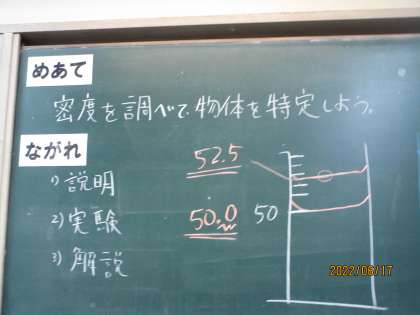 めあて
密度を調べて、物体を特定しよう。
ながれ
1) 説明
52.5
2) 実験
50.0
50
3) 解説
2022/06/17